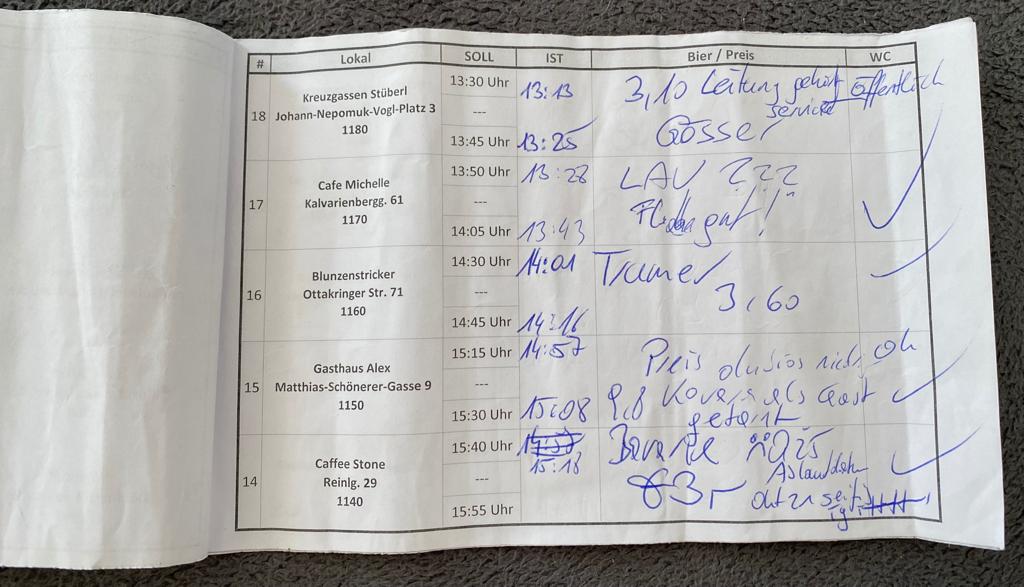 # Lokal SOLL IST Bier / Preis WC
18
Kreuzgassen Stüberl
Johann-Nepomuk-Vogl-Platz 3
1180
13:30 Uhr
---
13:45 Uhr
13:13
13:25
3,10 Leitung gehört öffentlich
service
Gösser
17
Cafe Michelle
Kalvarienbergg. 61
1170
13:50 Uhr
---
14:05 Uhr
13:28
13:43
LAV ???
gut!
16
Blunzenstricker
Ottakringer Str. 71
1160
14:30 Uhr
---
14:45 Uhr
14:01
14:16
Trumer
3,60
15
Gasthaus Alex
Matthias-Schönerer-Gasse 9
1150
15:15 Uhr
---
15:30 Uhr
14:57
15:08
Preis
als Gast
getarnt
14
Caffee Stone
Reinlg. 29
1140
15:40 Uhr
---
15:55 Uhr
15:18
3,-